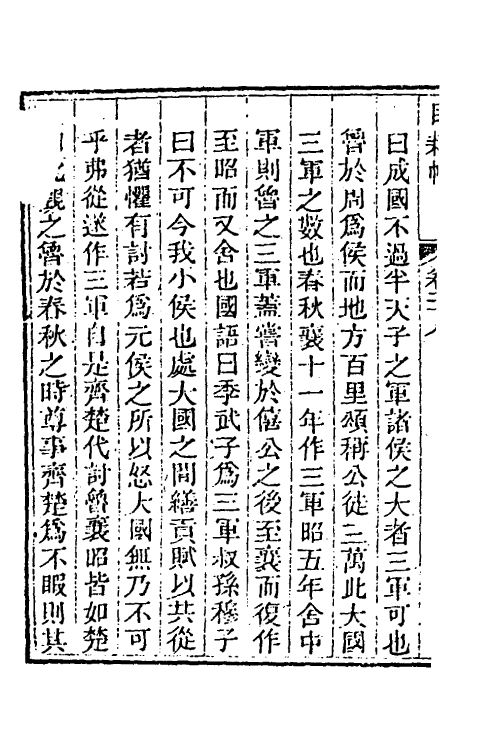 卷二十八
曰成國不過半天子之軍諸侯之大者三軍可也
魯於周爲侯而地方百里頌稱公徒三萬此大國
三軍之數也春秋襄十一年作三軍昭五年舍中
軍則魯之三軍蓋嘗變於僖公之後至襄而復作
至昭而又舍也國語曰季武子爲三軍叔孫穆子
曰不可今我小侯也處大國之間繕貢賦以共從
者猶懼有討若爲元侯之所以怒大國無乃不可
乎弗從遂作三軍自是齊楚代討魯襄昭皆如楚
觀之魯於春秋之時尊事齊楚爲不暇則其